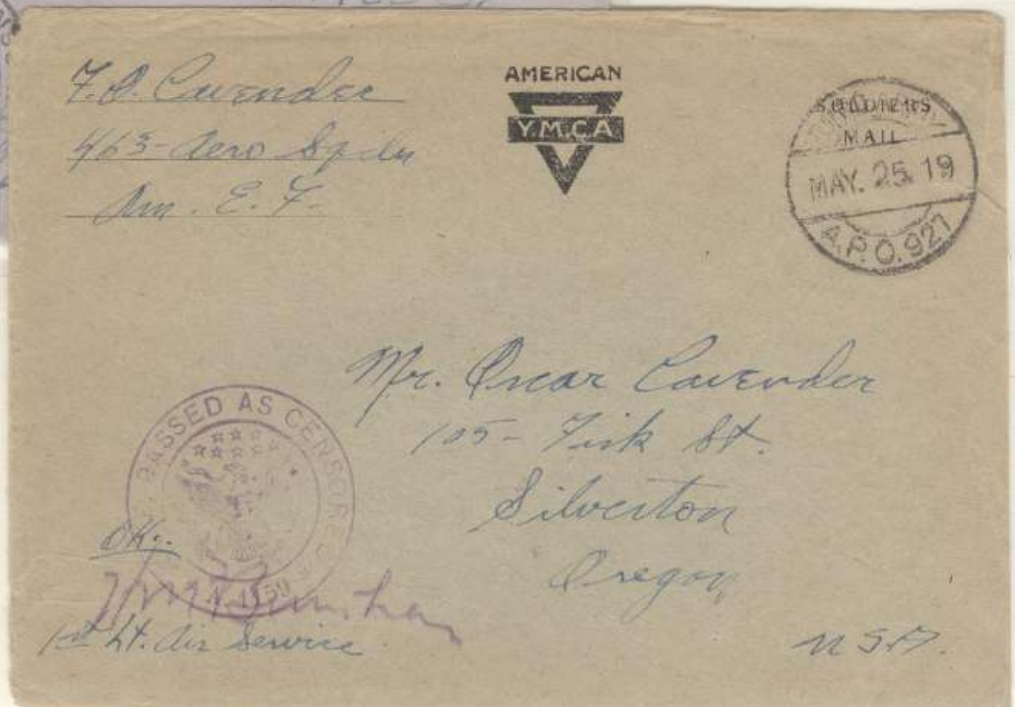 F. O. Cavender
463-Aero Sqdn
Am. E. F.
AMERICAN
Y.M.C.A
SOLDIERS
MAIL
MAY. 25. 19
A.P.O. 927
Mr. Oscar Cavender
105- Fisk St.
Silverton
Oregon
U S A.
PASSED AS CENSORED
OK.
1st Lt. Air Service.